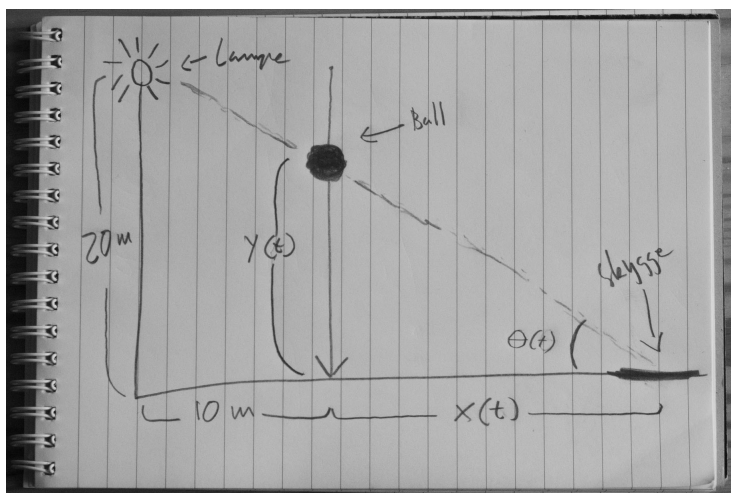 Lampe
Ball
20 m
y(t)
skygge
θ(t)
10 m
x(t)